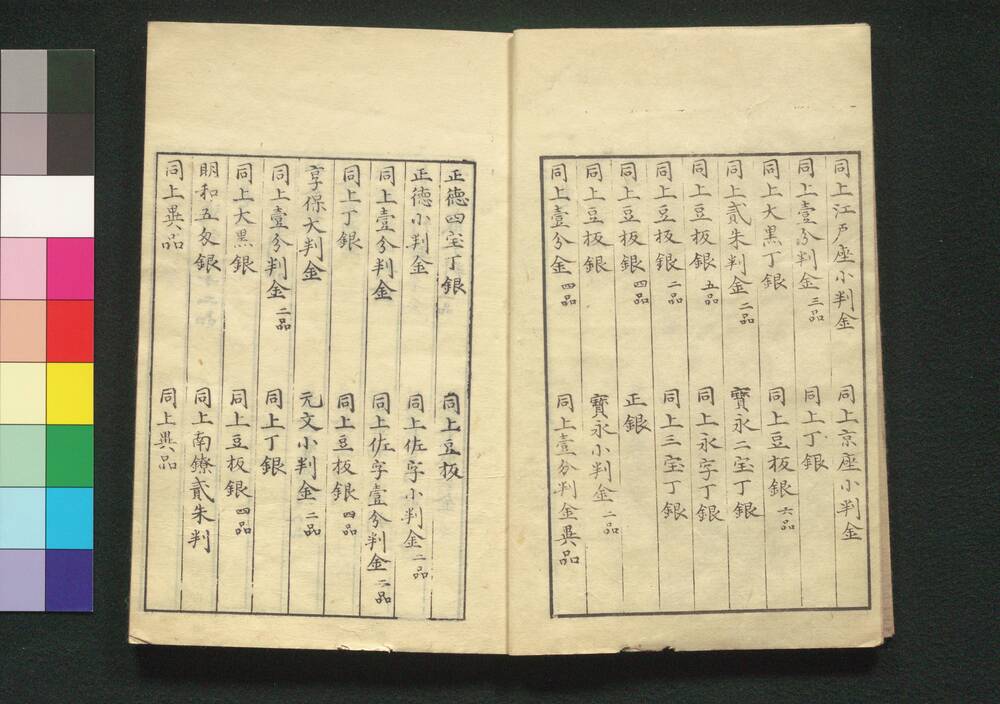 同上江戸座小判金
同上京座小判金
同上壹分判金 三品
同上丁銀
同上大黒丁銀
同上豆板銀 六品
同上貳朱判金 二品
寳永二宝丁銀
同上豆板銀 五品
同上永字丁銀
同上豆板銀 二品
同上三宝丁銀
同上豆板銀 四品
正銀
同上豆板銀
寳永小判金 二品
同上壹分金 四品
同上壹分判金異品
正徳四宝丁銀
同上豆板
正徳小判金
同上佐字小判金 二品
同上壹分判金
同上佐字壹分判金 二品
同上丁銀
同上豆板銀 四品
享保大判金
元文小判金 二品
同上壹分判金 二品
同上丁銀
同上大黒銀
同上豆板銀 四品
明和五匁銀
同上南鐐貳朱判
同上異品
同上異品